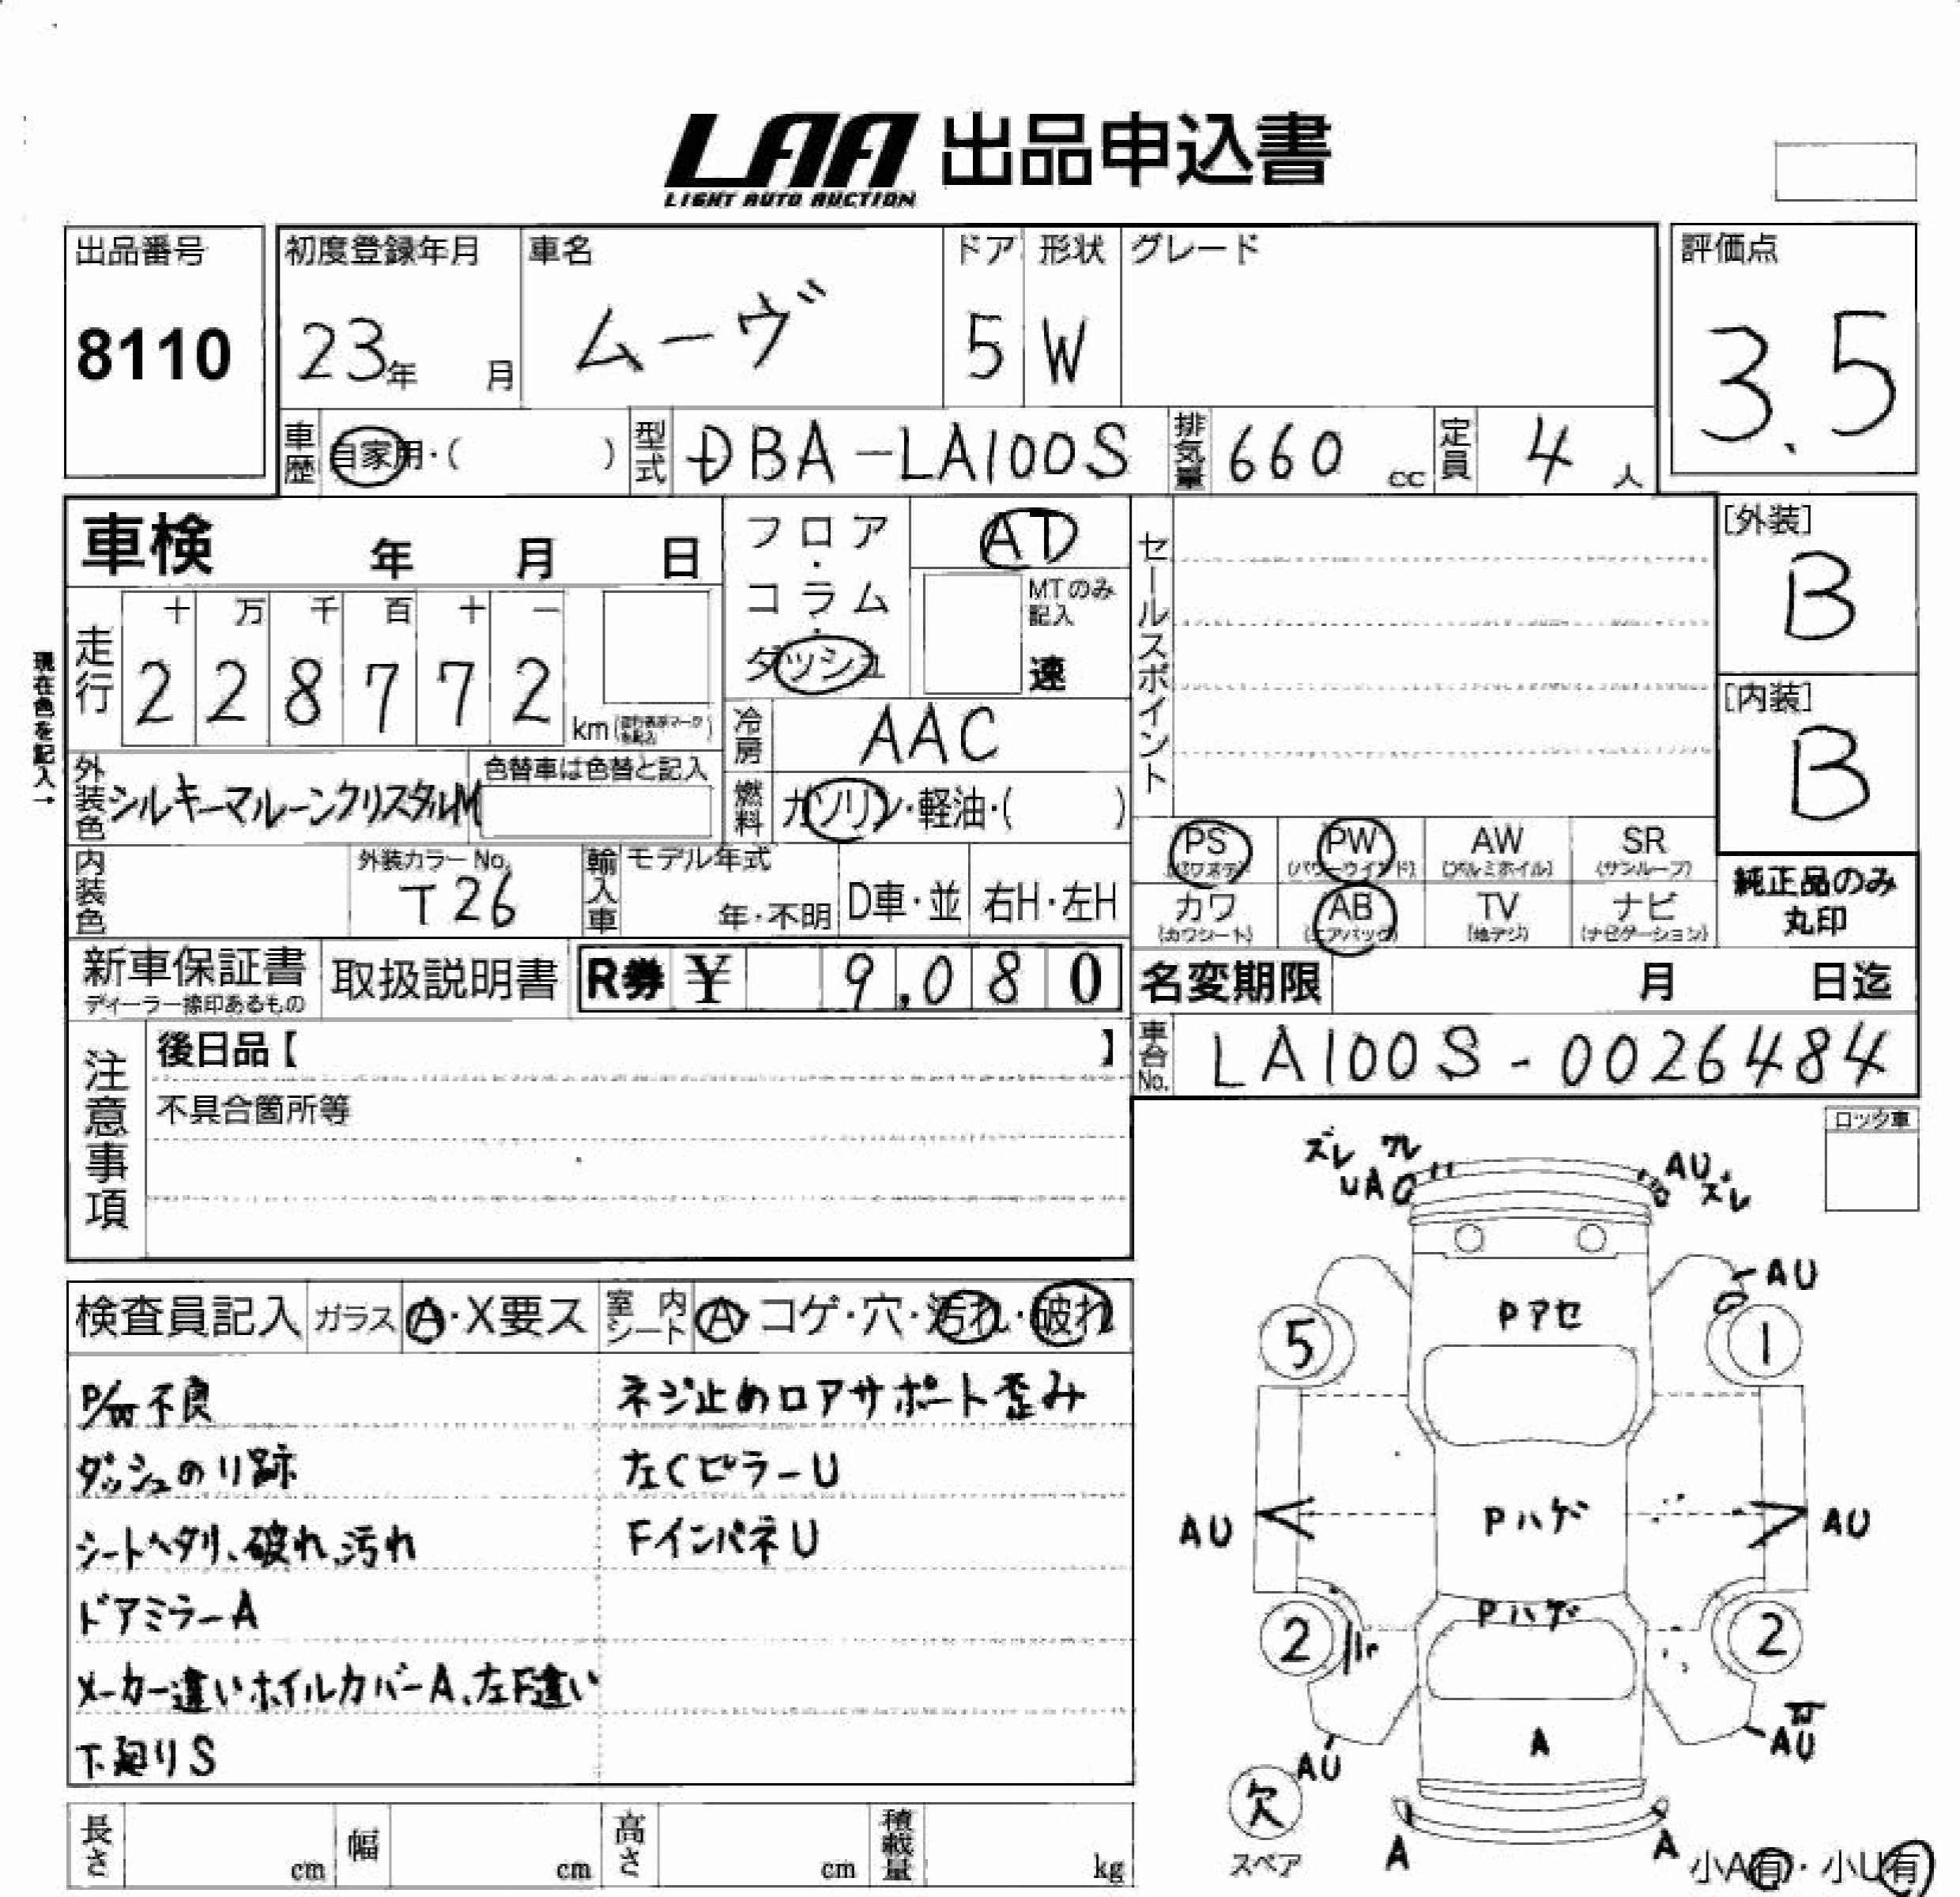 LAA 出品申込書
LIGHT AUTO AUCTION
出品番号
8110
初度登録年月
23年 月
車名
ムーヴ
ドア
5
形状
W
グレード
評価点
3.5
車歴
自家用・( )
型式
DBA-LA100S
排気量
660 cc
定員
4 人
車検 年 月 日
現在色を記入→
走行
十 万 千 百 十 一
2 2 8 7 7 2 km
フロア・コラム・ダッシュ
AT
MTのみ記入
速
冷房
AAC
燃料
ガソリン・軽油・( )
セールスポイント
[外装]
B
[内装]
B
外装色
シルキーマルーンクリスタルM
色替車は色替と記入
内装色
外装カラーNo.
T26
輸入車
モデル年式
年・不明
D車・並
右H・左H
PS
(パワステ)
PW
(パワーウインド)
AW
(アルミホイル)
SR
(サンルーフ)
カワ
(カワシート)
AB
(エアバッグ)
TV
(地デジ)
ナビ
(ナビゲーション)
純正品のみ
丸印
新車保証書
ディーラー捺印あるもの
取扱説明書
R券 ¥ 9,080
名変期限 月 日迄
車台No.
LA100S-0026484
注意事項
後日品【 】
不具合箇所等
ロック車
検査員記入
ガラス
A・X要ス
室内シート
A・コゲ・穴・汚れ・破れ
P/W不良
ダッシュのり跡
シートヘタリ、破れ、汚れ
ドアミラーA
メーカー違いホイルカバーA、左F違い
下廻りS
ネジ止めロアサポート歪み
左CピラーU
FインパネU
ズレ ワレ
UA
AU
ズレ
AU
Pアセ
5
1
AU
Pハゲ
AU
Pハゲ
2
2
A
AU
AU
欠
スペア
A
A
小A有・小U有
長さ cm
幅 cm
高さ cm
積載量 kg